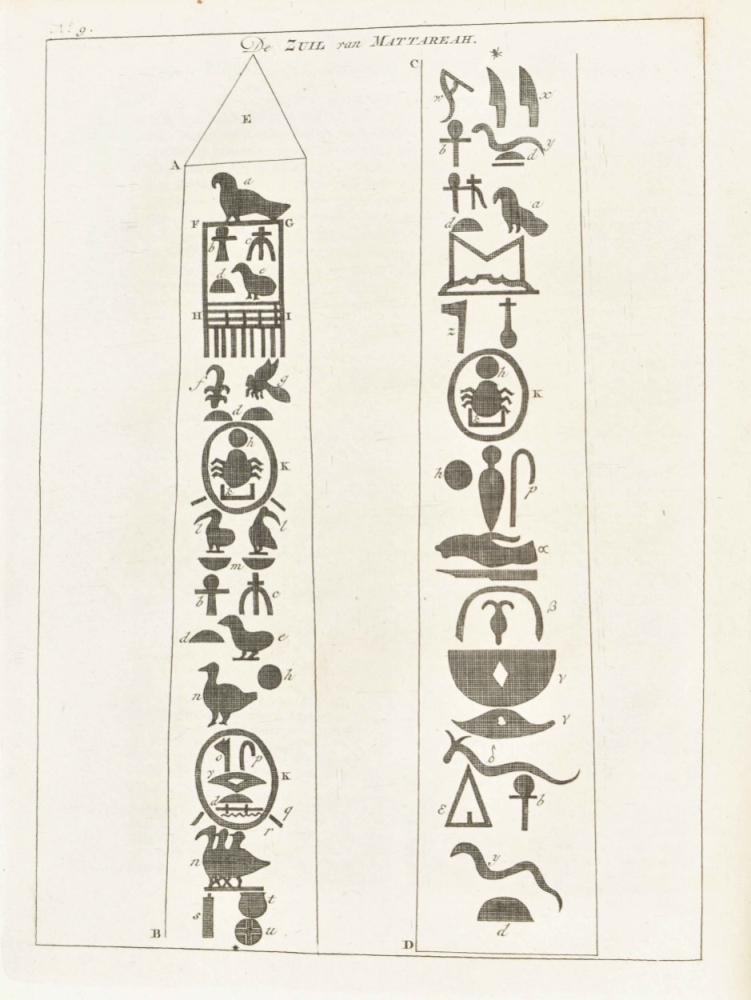 N.º 9.
De ZUIL van MATTAREAH.
E
A
a
F G
b c
d e
H I
f g
d
h
K
k
l l
m
b c
d e
n h
o p
γ K
d
q
r
n
s t
u
B *
C *
w x
b d y
d a
z
h
K
k
h p
α
β
γ
γ
δ
ε b
y
d
D